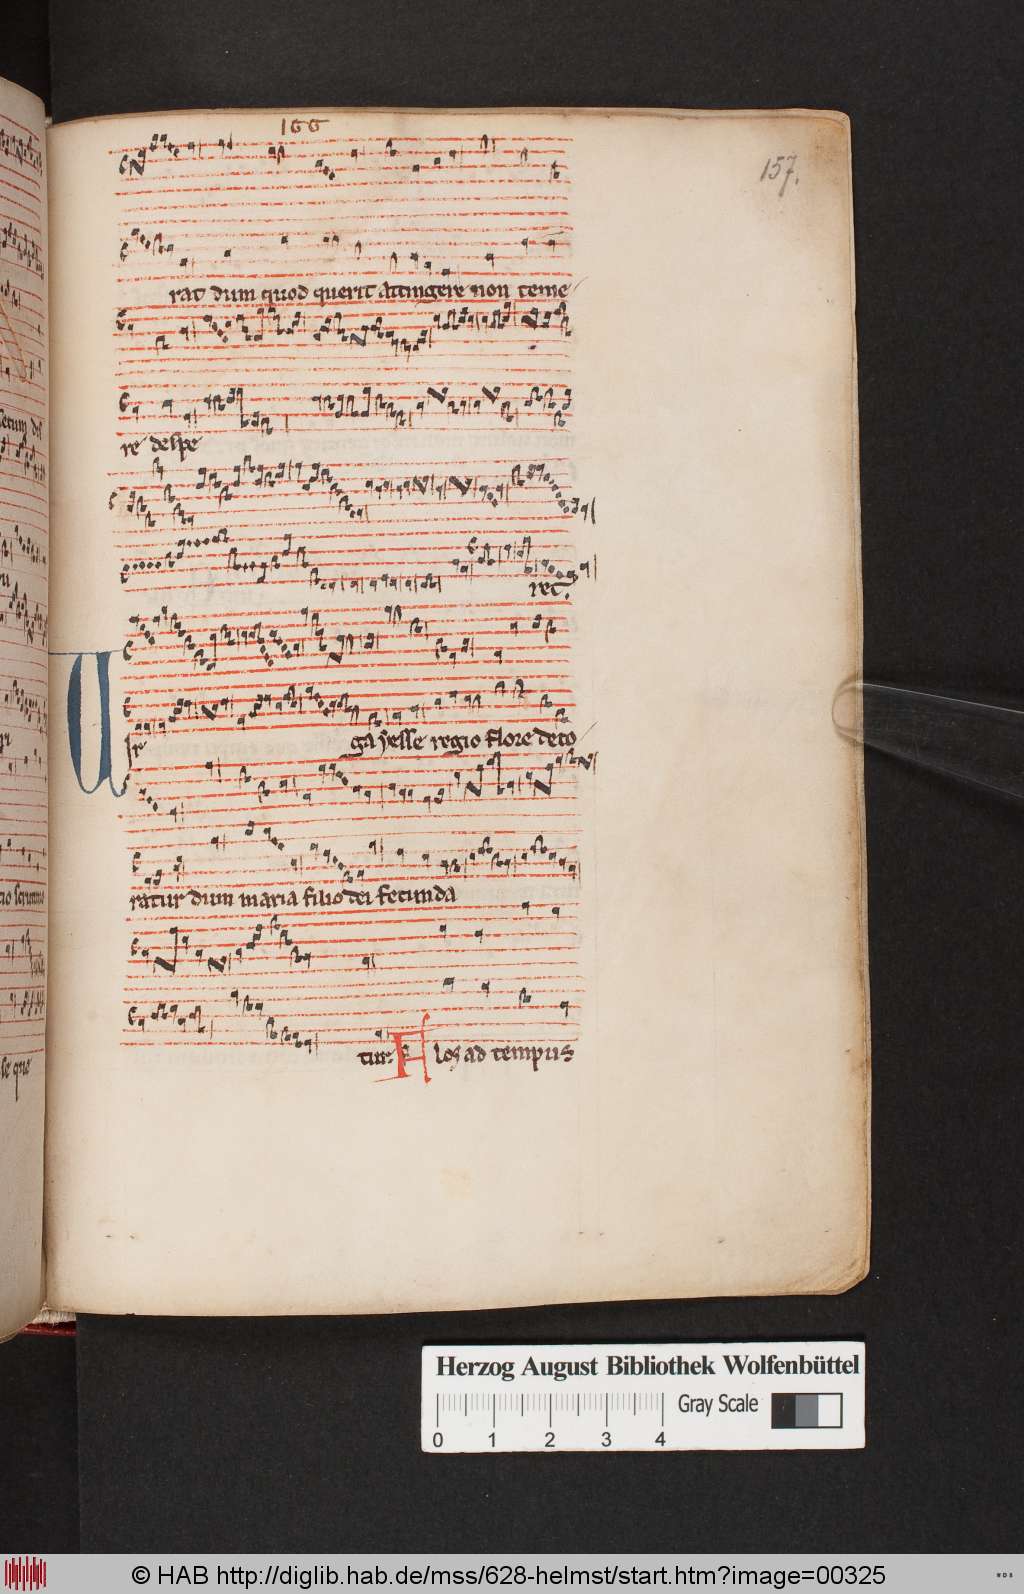 166
157.
rat dum quod querit attingere non teme
re despe
ret.
Uir
ga yesse regio flore deco
ratur dum maria filio dei fecunda
tur. Flos ad tempus
Herzog August Bibliothek Wolfenbüttel
Gray Scale
0 1 2 3 4
© HAB http://diglib.hab.de/mss/628-helmst/start.htm?image=00325